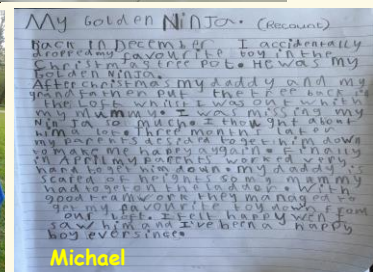 My Golden Ninja. (Recount)
Back in December I accidentally
dropred my favourite toy in the
Christmas tree pot. He was my
Golden Ninja.
After christmas my daddy and my
grandfather put the tree back in
the Loft whilst I was out whith
my mummy. I was missing my
Ninja so much. I thought about
him a lot. Three months later
my parents desided to get him down
to make me happy again. Finally
in April my parents worked very
hard to get him down. My daddy is
scared of heights so my mammy
had to get on the ladder. With
good teamwork they managed to
get my favourite toy down from
our loft. I felt happy wen I
saw him and I've been a happy
boy ever since.
Michael